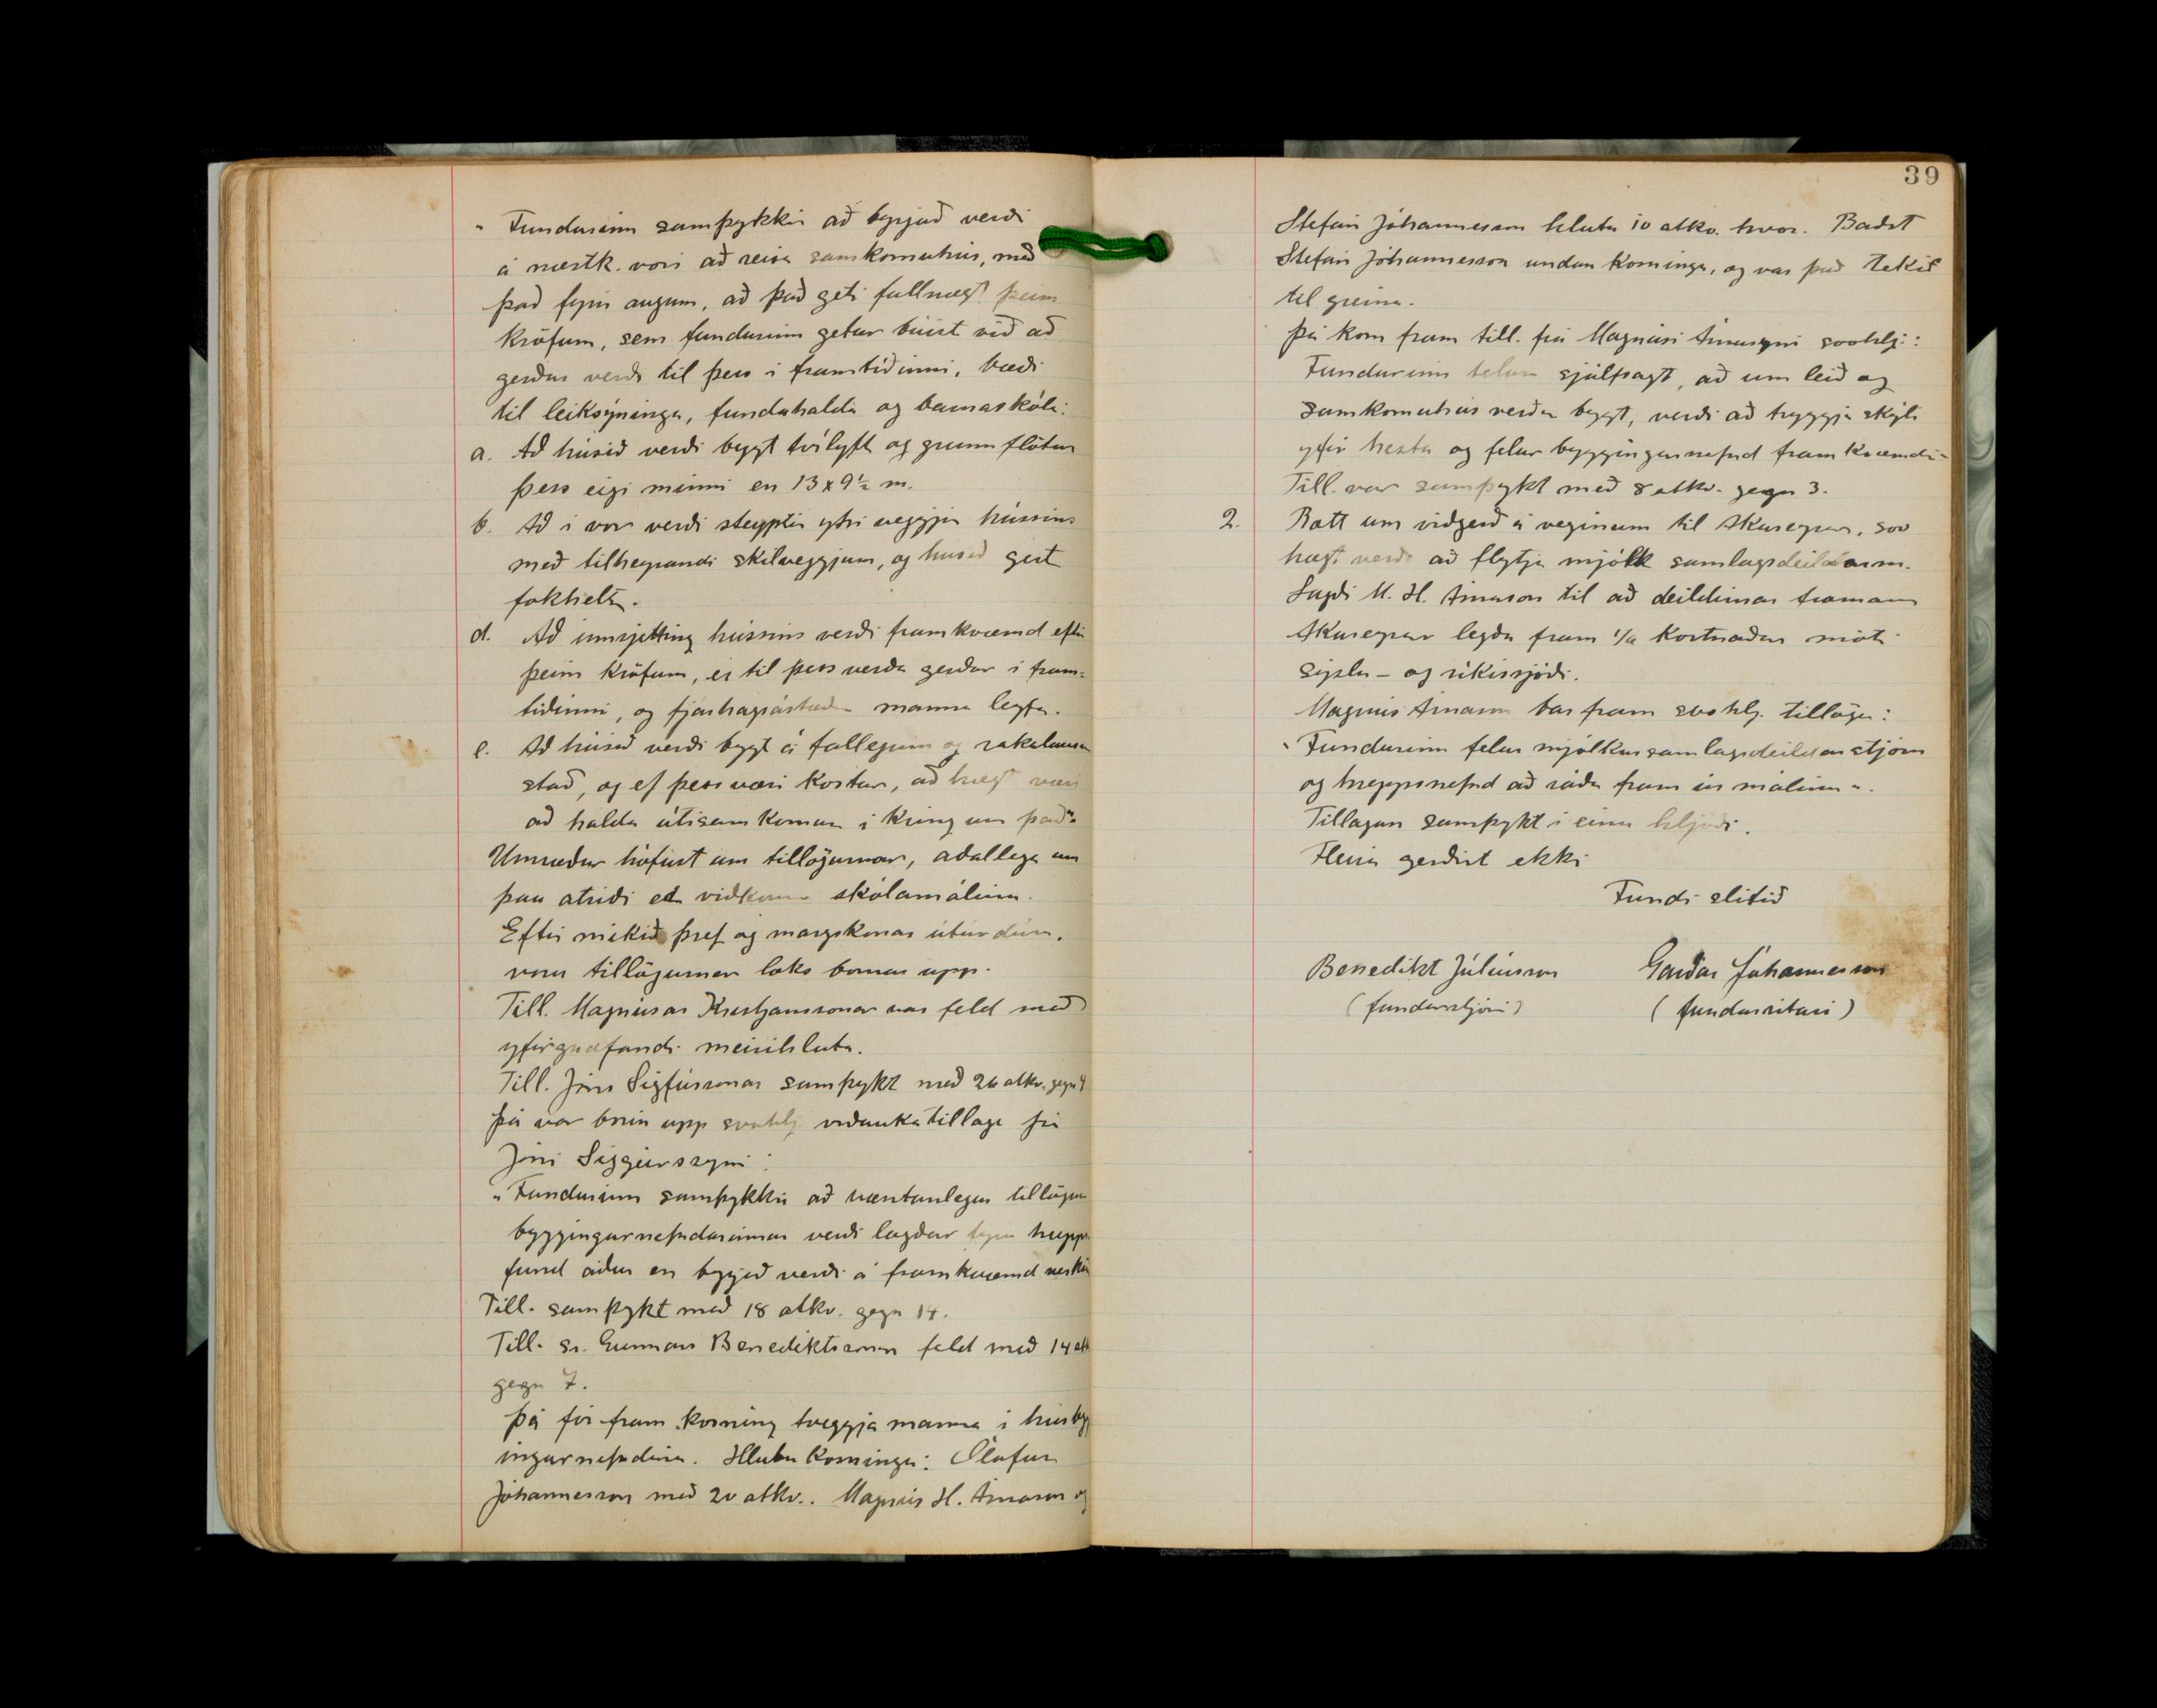 „Fundurinn samþykkir að byrjað verði
á næstk. vori að reisa samkomuhús, með
það fyrir augum, að það geti fullnægt þeim
kröfum, sem fundurinn getur búist við að
gerðar verði til þess í framtíðinni, bæði
til leiksýninga, fundahalda og barnaskóla:
a. Að húsið verði bygt tvílyft og grunnflötur
þess eigi minni en 13 x 9½ m.
b. Að í vor verði steyptir ytri veggir hússins
með tilheyrandi skilveggjum, og húsið gert
fokhelt.
d. Að innrjetting hússins verði framkvæmd eftir
þeim kröfum, er til þess verða gerðar í fram-
tíðinni, og fjárhagsástæður manna leyfa.
e. Að húsið verði bygt á fallegum og rakalausum
stað, og ef þess væri kostur, að hægt væri
að halda útisamkomur í kring um það“.
Umræður hófust um tillögurnar, aðallega um
þau atriði er viðkoma skólamálinu.
Eftir mikið þref og margskonar útúrdúra,
voru tillögurnar loks bornar upp.
Till. Magnúsar Kristjánssonar var feld með
yfirgnæfandi meirihluta.
Till. Jóns Sigfússonar samþykt með 26 atkv. gegn 4
Þá var borin upp svohlj. viðaukatillaga frá
Jóni Siggeirssyni:
„Fundurinn samþykkir að væntanlegar tillögur
byggingarnefndarinnar verði lagðar fyrir hrepps
fund áður en byrjað verði á framkvæmd verksins
Till. samþykt með 18 atkv. gegn 14.
Till. sr. Gunnars Benediktssonar feld með 14 atk
gegn 7.
Þá fór fram kosning tveggja manna í húsbygg
ingarnefndina. Hlutu kosningu: Ólafur
Jóhannesson með 20 atkv.. Magnús H. Árnason og
39
Stefán Jóhannesson hlutu 10 atkv. hvor. Baðst
Stefán Jóhannesson undan kosningu, og var það tekið
til greina.
Þá kom fram till. frá Magnúsi Árnasyni svohlj.:
Fundurinn telur sjálfsagt, að um leið og
samkomuhús verður bygt, verði að tryggja skýli
yfir hesta og felur byggingarnefnd framkvæmdi-
Till. var samþykt með 8 atkv. gegn 3.
2. Rætt um viðgerð á veginum til Akureyrar, svo
hægt verði að flytja mjólk samlagsdeildarinn.
Lagði M. H. Árnason til að deildirnar framan
Akureyrar legðu fram ½ kostnaðar móti
sýslu- og ríkissjóði.
Magnús Árnason bar fram svohlj. tillögu:
„Fundurinn felur mjólkursamlagsdeildarstjórn
og hreppsnefnd að ráða fram úr málinu“.
Tillagan samþykt í einu hljóði.
Fleira gerðist ekki
Fundi slitið
Benedikt Júlíusson Garðar Jóhannesson
(fundarstjóri) (fundarritari)